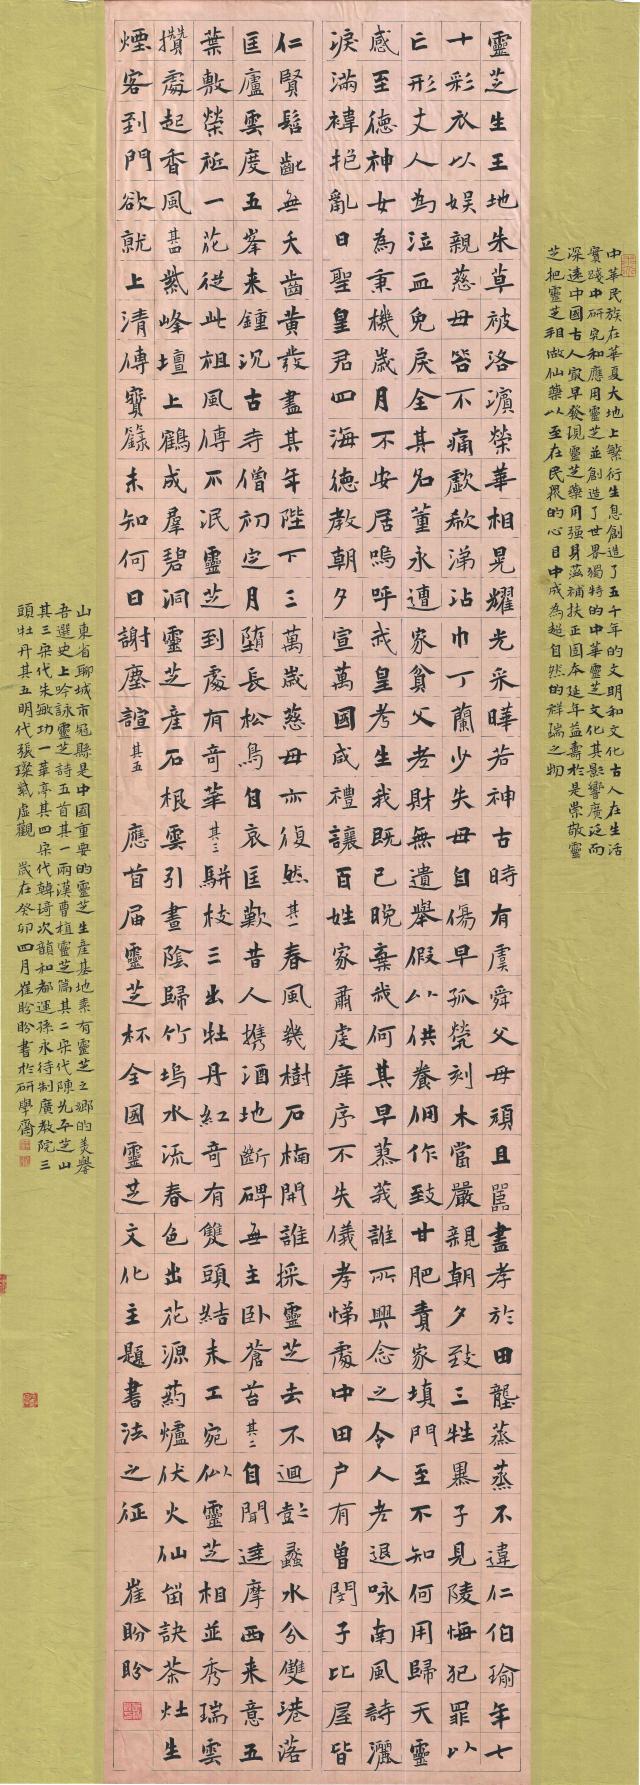 中華民族在華夏大地上繁衍生息創造了五千年的文明和文化古人在生活
實踐中研究和應用靈芝並創造了世界獨特的中華靈芝文化其影響廣泛而
深遠中國古人最早發現靈芝藥用强身滋補扶正固本延年益壽於是崇敬靈
芝把靈芝稱做仙藥以至在民眾的心目中成為超自然的祥瑞之物
靈芝生王地朱草被洛濱榮華相晃耀光采曄若神古時有虞舜父母頑且嚚盡孝於田壟蒸蒸不違仁伯瑜年七
十彩衣以娛親慈母笞不痛歔欷涕沾巾丁蘭少失母自傷早孤煢刻木當嚴親朝夕致三牲暴子見陵悔犯罪以
亡形丈人為泣血免戾全其名董永遭家貧父老財無遺舉假以供養佣作致甘肥責家填門至不知何用歸天靈
感至德神女為秉機歲月不安居嗚呼我皇考生我既已晚棄我何其早蓼莪誰所興念之令人老退咏南風詩灑
淚滿褘袍亂曰聖皇君四海德教朝夕宣萬國咸禮讓百姓家肅虔庠序不失儀孝悌處中田户有曾閔子比屋皆
仁賢髫齔無夭齒黃髮盡其年陛下三萬歲慈母亦復然其一春風幾樹石楠開誰採靈芝去不迴彭蠡水分雙港落
匡廬雲度五峯來鍾沉古寺僧初定月墮長松鳥自哀匡歎昔人携酒地斷碑無主卧蒼苔其二自聞達摩西來意五
葉敷榮祗一花從此祖風傳不泯靈芝到處有奇華其三駢枝三出牡丹紅奇有雙頭結未工宛似靈芝相並秀瑞雲
攢處起香風其四紫峰壇上鶴成羣碧洞靈芝產石根雲引晝陰歸竹塢水流春色出花源葯爐伏火仙留訣茶灶生
煙客到門欲就上清傳寶籙未知何日謝塵諠其五 應首届靈芝杯全國靈芝文化主題書法之征 崔盼盼
山東省聊城市冠縣是中國重要的靈芝生産基地素有靈芝之鄉的美譽
吾選史上吟詠靈芝詩五首其一兩漢曹植靈芝篇其二宋代陳先奉芝山
其三宋代朱敏功一華亭其四宋代韓琦次韻和都運孫永待制廣教院三
頭牡丹其五明代張璨紫虛觀 歲在癸卯四月崔盼盼書於研學齋